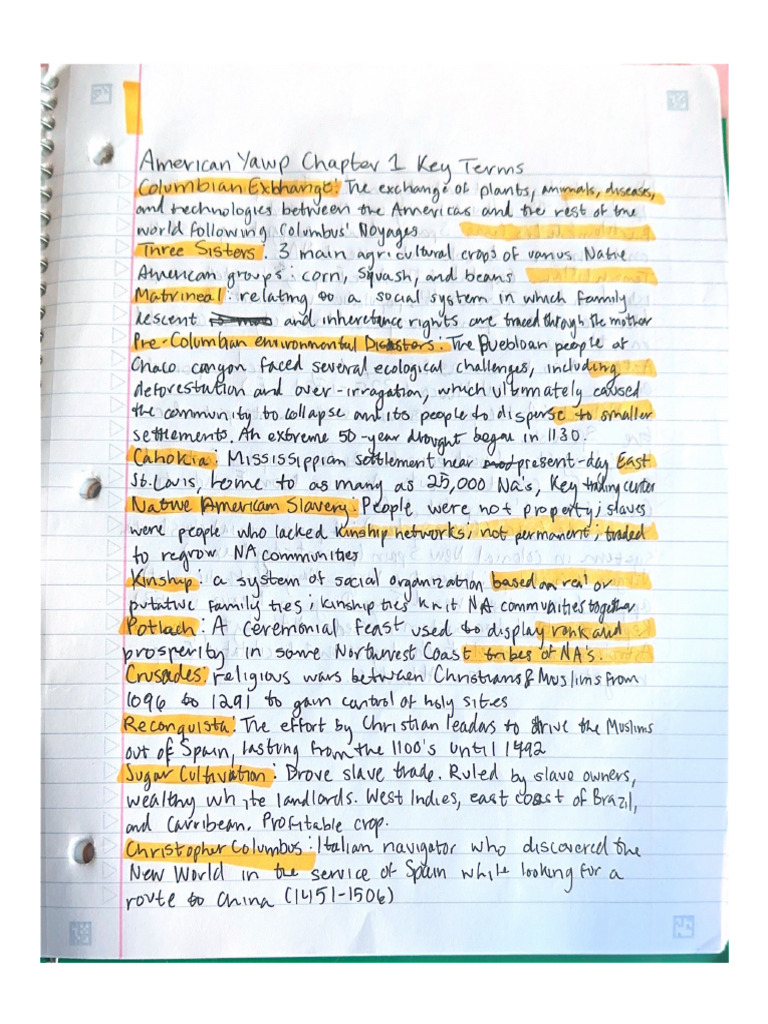 American Yawp Chapter 1 Key Terms
Columbian Exchange: The exchange of plants, animals, diseases,
and technologies between the Americas and the rest of the
world following Columbus' Voyages
Three Sisters. 3 main agricultural crops of various Native
American groups: corn, squash, and beans
Matrineal: relating to a social system in which family
descent and inheretance rights are traced through the mother
Pre-Columbian environmental Disasters: The Puebloan people at
Chaco canyon faced several ecological challenges, including
deforestation and over-irragation, which ultimately caused
the community to collapse and its people to disperse to smaller
settlements. An extreme 50-year drought began in 1130.
Cahokia: Mississippian settlement near present-day East
St. Louis, home to as many as 25,000 NA's, Key trading center
Native American Slavery: People were not property; slaves
were people who lacked kinship networks; not permanent; traded
to regrow NA communities
Kinship: a system of social organization based on real or
putative family ties; kinship ties knit NA communities together
Potlach: A ceremonial feast used to display rank and
prosperity in some Northwest Coast tribes of NA's.
Crusades: religious wars between Christians & Muslims from
1096 to 1291 to gain control of holy sites
Reconquista: The effort by Christian leaders to drive the Muslims
out of Spain, lasting from the 1100's until 1492
Sugar Cultivation: Drove slave trade. Ruled by slave owners,
wealthy white landlords. West Indies, east coast of Brazil,
and Carribean. Profitable crop.
Christopher Columbus: Italian navigator who discovered the
New World in the service of Spain while looking for a
route to China (1451-1506)